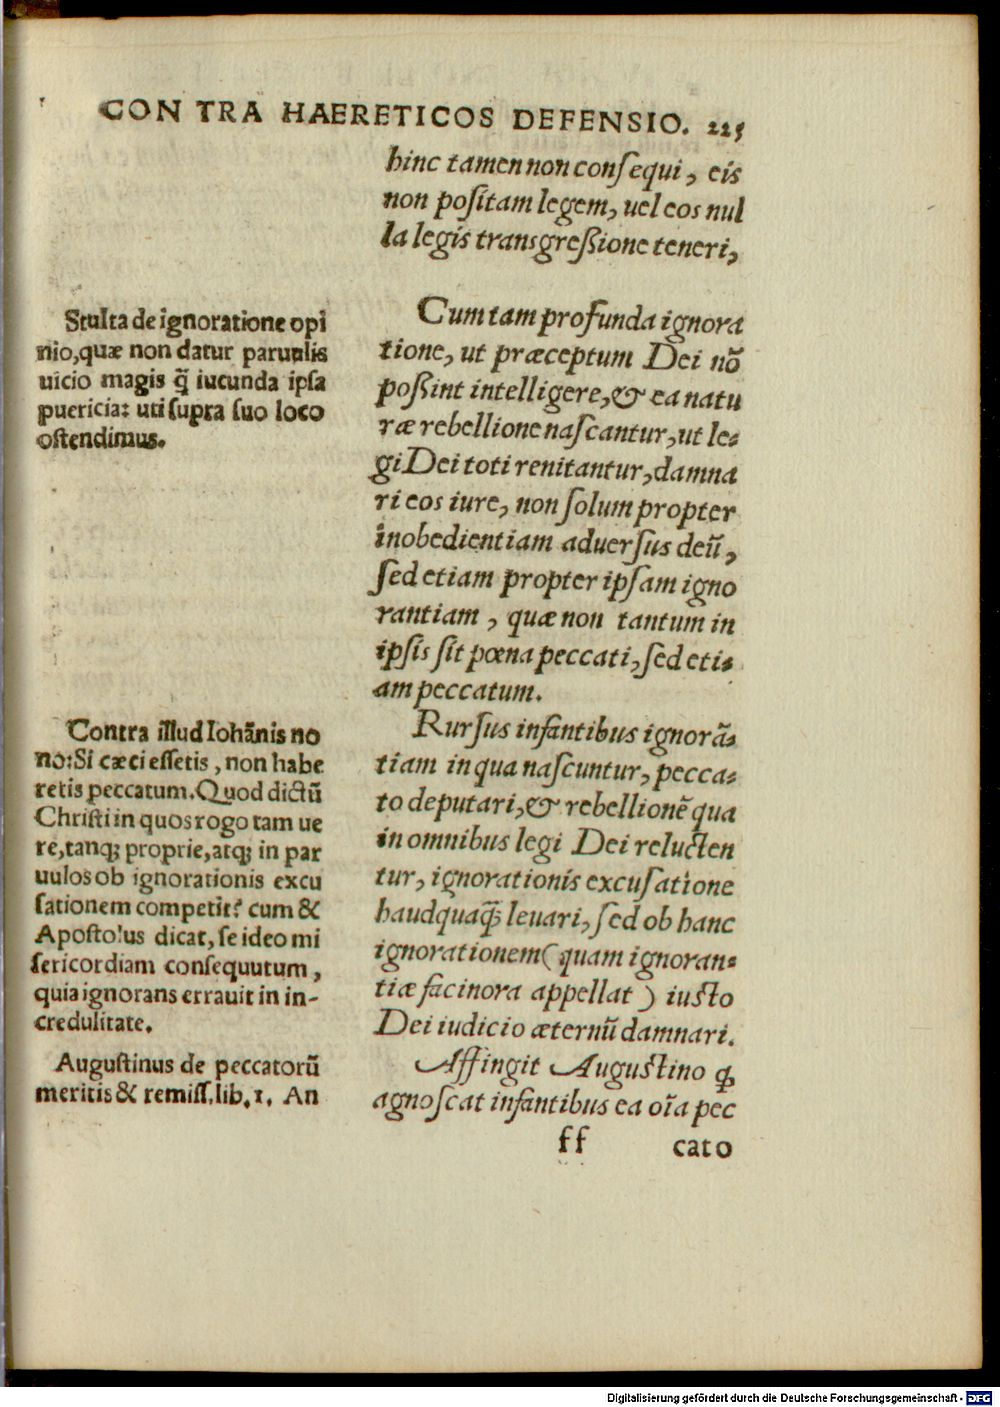 CONTRA HAERETICOS DEFENSIO. 225
hinc tamen non consequi, eis
non positam legem, uel eos nul
la legis transgreßione teneri,
Cum tam profunda ignora
tione, ut præceptum Dei nō
poßint intelligere, & ea natu
ræ rebellione nascantur, ut le-
gi Dei toti renitantur, damna
ri eos iure, non solum propter
inobedientiam aduersus deū,
sed etiam propter ipsam igno
rantiam, quæ non tantum in
ipsis sit pœna peccati, sed eti-
am peccatum.
Rursus infantibus ignorā-
tiam in qua nascuntur, pecca-
to deputari, & rebellionē qua
in omnibus legi Dei relucten
tur, ignorationis excusatione
haudquaq̃ leuari, sed ob hanc
ignorationem (quam ignoran-
tiæ facinora appellat) iusto
Dei iudicio æternū damnari.
Affingit Augustino ꝙ
agnoscat infantibus ea oīa pec
ff cato
Stulta de ignoratione opi
nio, quæ non datur paruulis
uicio magis q̃ iucunda ipsa
puericia: uti supra suo loco
ostendimus.
Contra illud Iohānis no
no: Si cæci essetis, non habe
retis peccatum. Quod dictū
Christi in quos rogo tam ue
re, tanq; proprie, atq; in par
uulos ob ignorationis excu
sationem competit? cum &
Apostolus dicat, se ideo mi
sericordiam consequutum,
quia ignorans errauit in in-
credulitate.
Augustinus de peccatorū
meritis & remiss. lib. 1. An
Digitalisierung gefördert durch die Deutsche Forschungsgemeinschaft - DFG